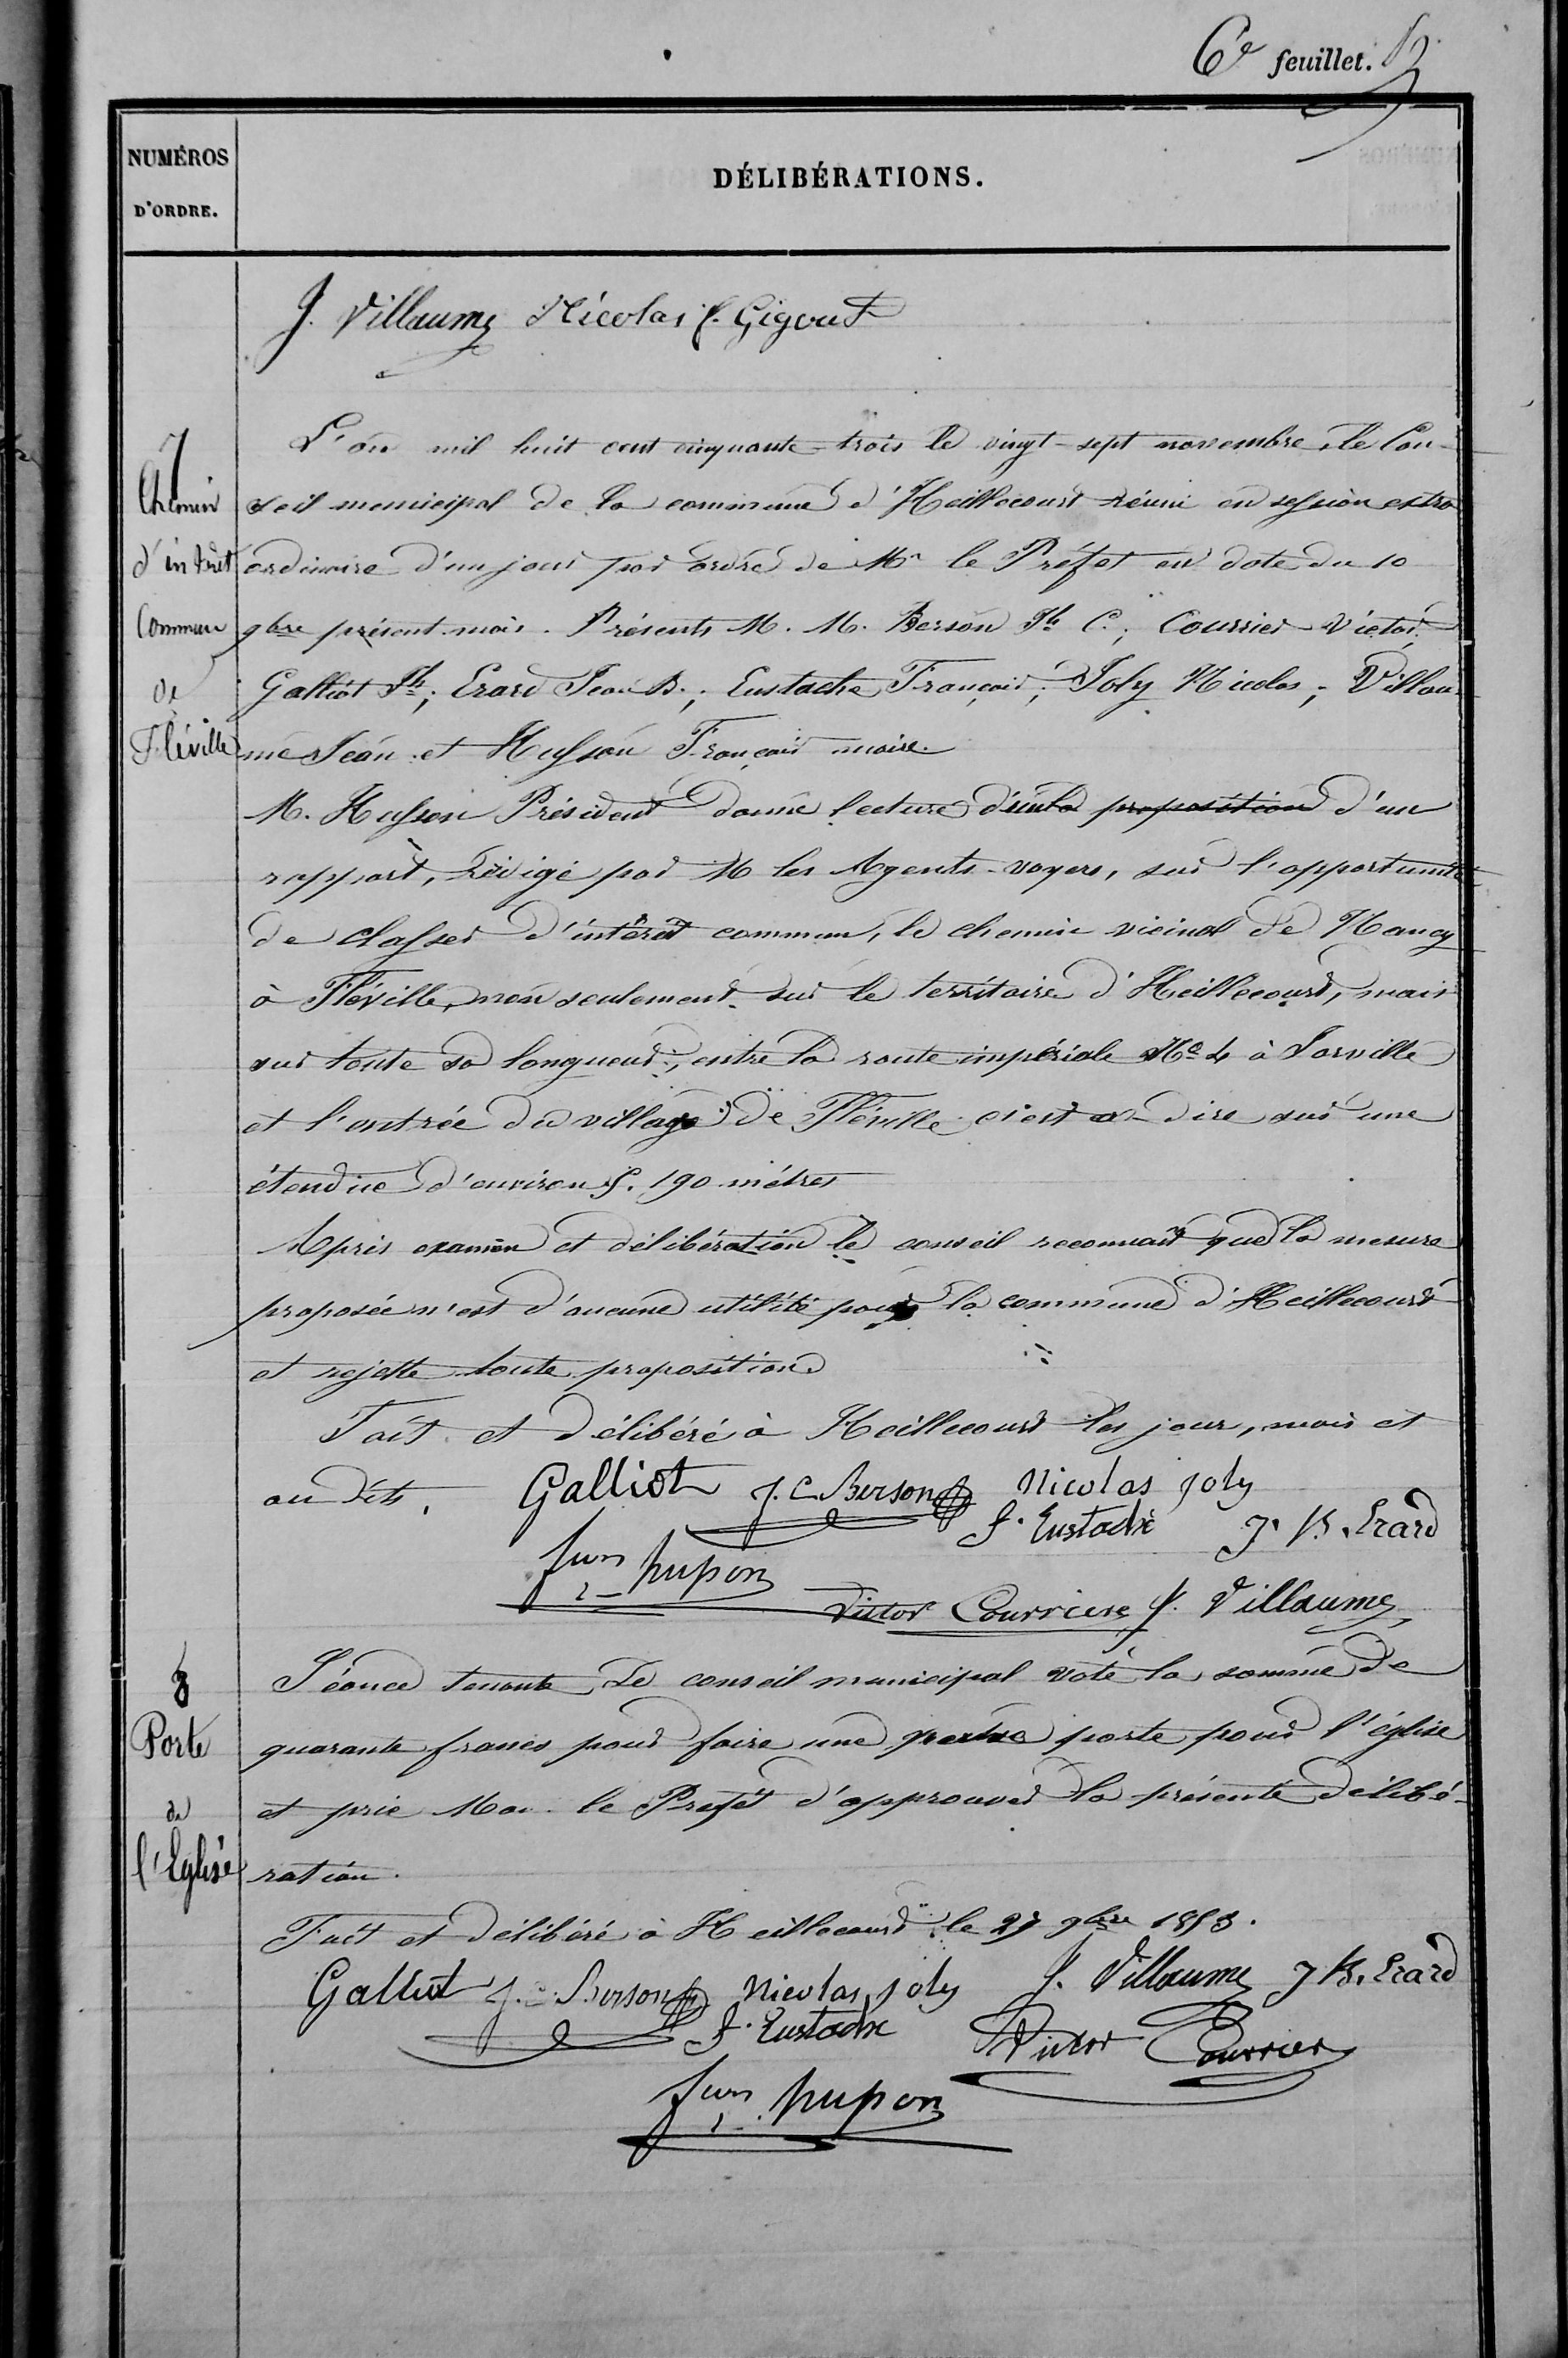 6e feuillet.
NUMÉROS
D'ORDRE.
DÉLIBÉRATIONS.
J. Villaume Nicolas f. Gigout
7
Chemin
d'intérêt
Commun
de
Fléville
L'an mil huit cent cinquante-trois le vingt-sept novembre, le Con-
seil municipal de la commune d'Heillecourt réuni en session extra
ordinaire d'un jour par ordre de Mr le Préfet en date du 10
9bre présent mois. Présents M. M. Berson Jh C.; Courrier Victor;
Galliot Jh; Erard Jean B.; Eustache François; Joly Nicolas; Villau-
me Jean et Husson François maire.
M. Husson Président donne lecture proposition d'un
rapport, rédigé par M les Agents-voyers, sur l'opportunité
de classer d'intérêt commun, le chemin vicinal de Nancy
à Fléville, non seulement sur le territoire d'Heillecourt, mais
sur toute sa longueur, entre la route impériale No 4 à Jarville
et l'entrée du village de Fléville c'est-à-dire sur une
étendue d'environ 5.190 mètres
Après examen et délibération le conseil reconnait que la mesure
proposée n'est d'aucune utilité pour la commune d'Heillecourt
et rejette toute proposition
Fait et délibéré à Heillecourt les jour, mois et
an dits.
Galliot J. C Berson Nicolas Joly
f. Eustache J. B. Erard
fois husson
Victor Courrier J. Villaume
8
Porte
de
l'Eglise
Séance tenante Le conseil municipal vote la somme de
quarante francs pour faire une porte pour l'église
et prie Mon. le Préfet d'approuver la présente délibé-
ration.
Fait et délibéré à Heillecourt le 27 9bre 1853.
Galliot J. C. Berson Nicolas Joly J. Villaume J B. Erard
f. Eustache Victor Courrier
fois husson